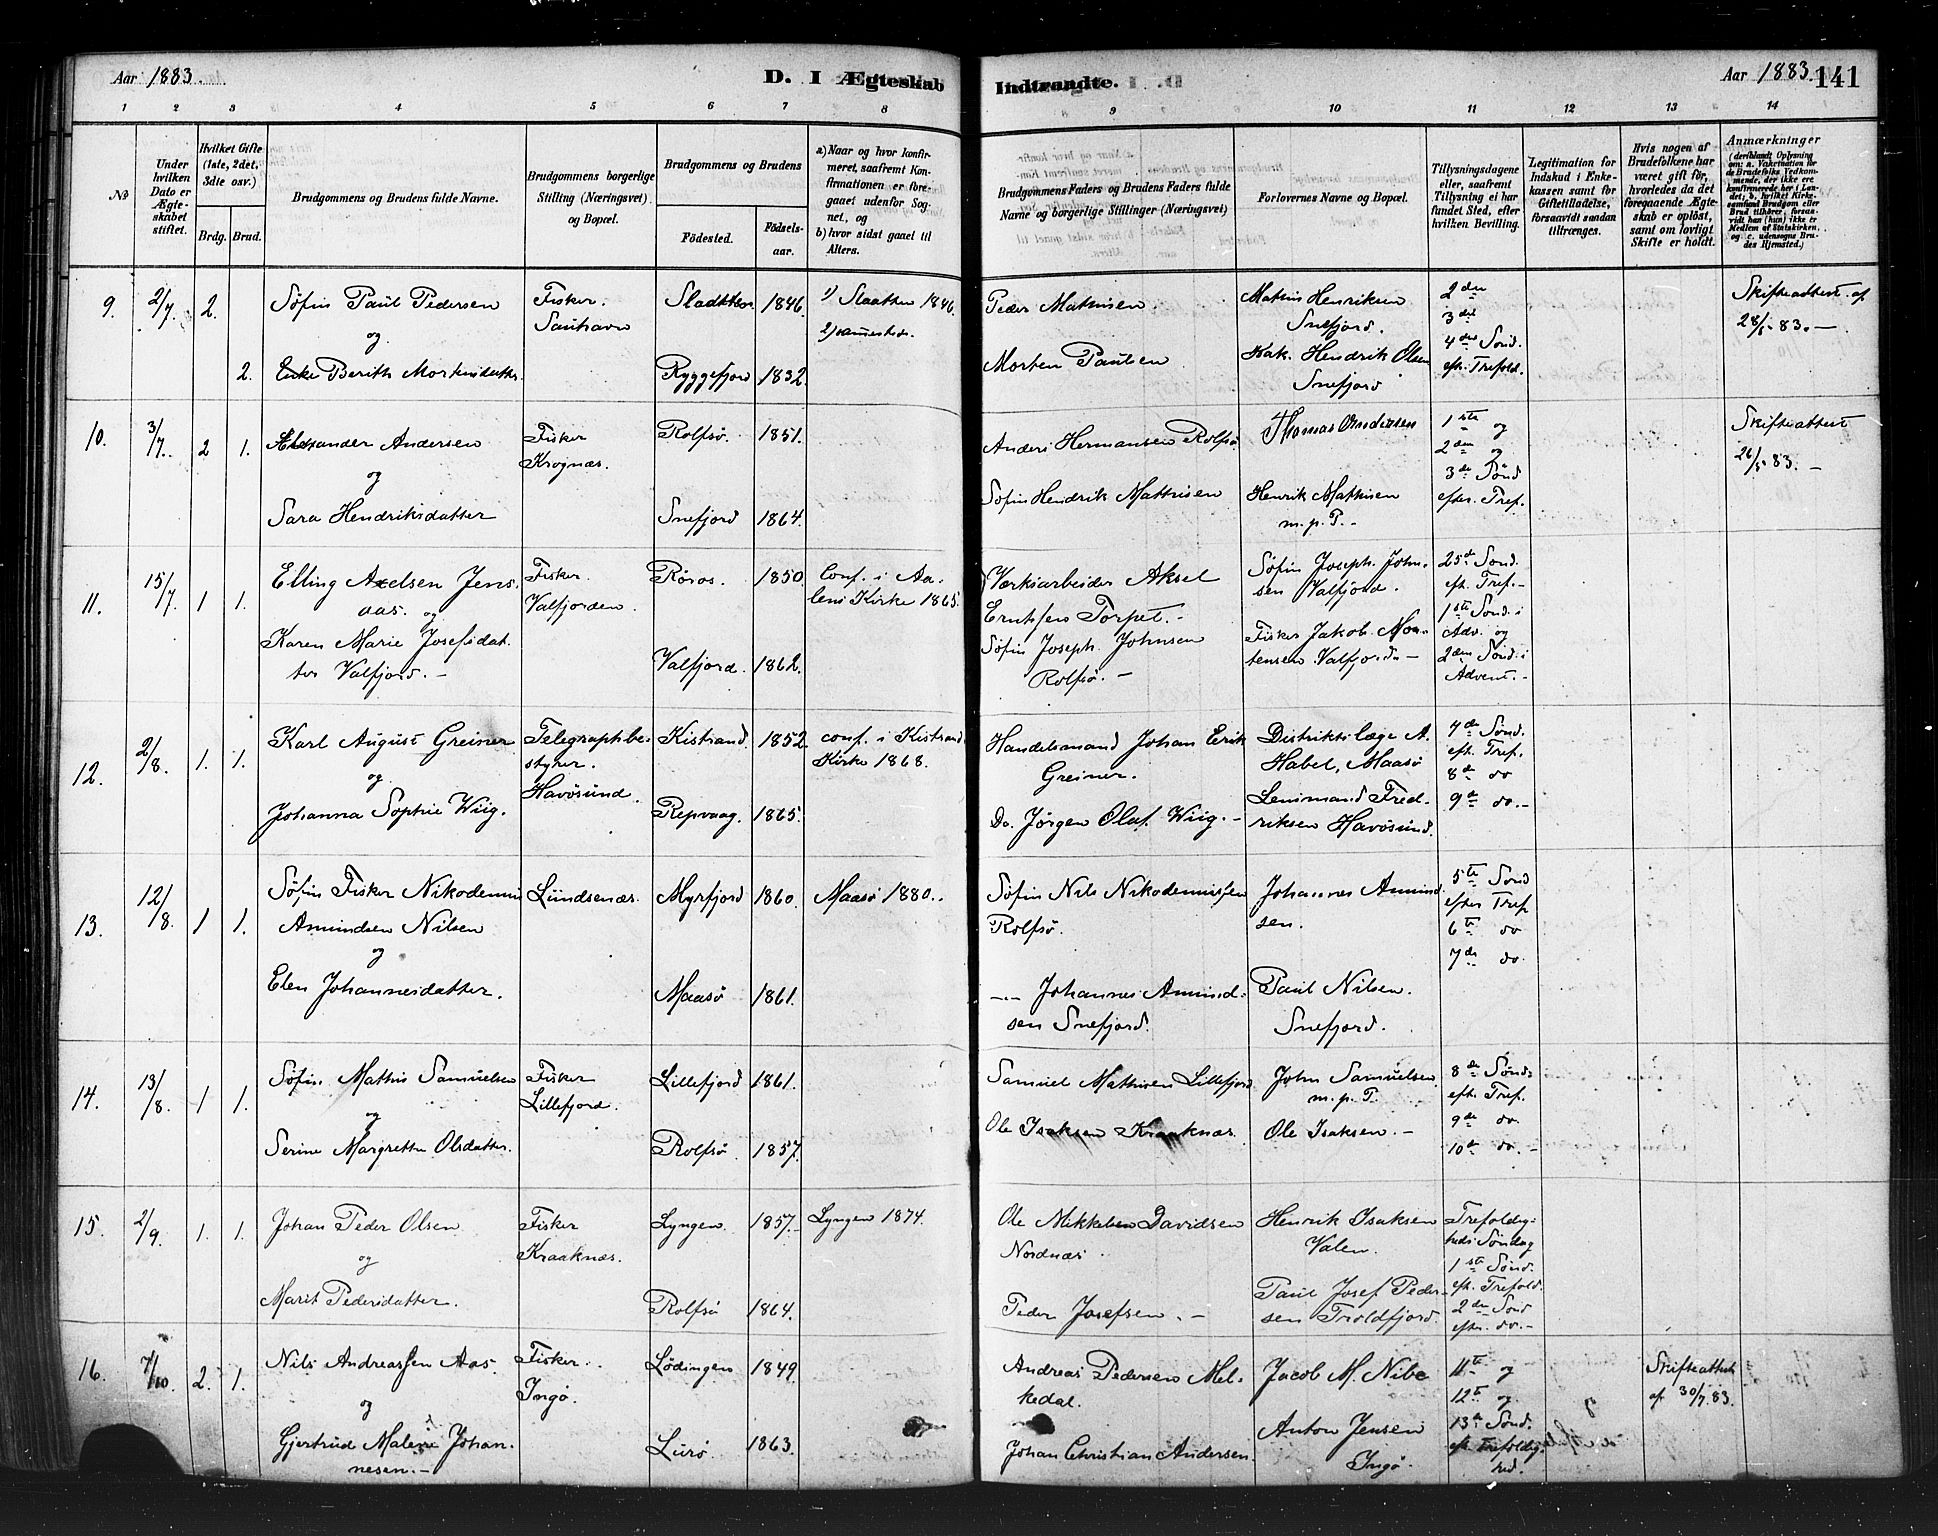 Aar 1883. D. I Ægteskab Indtraadte. Aar 1883. 141
1 2 3 4 5 6 7 8 9 10 11 12 13 14
No
Under hvilken Dato er Ægteskabet stiftet.
Hvilket Gifte (1ste, 2det, 3die osv.)
Brdg. Brud.
Brudgommens og Brudens fulde Navne.
Brudgommens borgerlige Stilling (Næringsvei) og Bopæl.
Brudgommens og Brudens
Födested. Födsels-aar.
a) Naar og hvor konfirmeret, saafremt Konfirmationen er foregaaet udenfor Sognet, og
b) hvor sidst gaaet til Alters.
Brudgommens Faders og Brudens Faders fulde Navne og borgerlige Stillinger (Næringsvei)
Forlovernes Navne og Bopæl.
Tillysningsdagene eller, saafremt Tillysning ei har fundet Sted, efter hvilken Bevilling.
Legitimation for Indskud i Enkekassen samt for Giftetilladelse, forsaavidt saadan tiltrænges.
Hvis nogen af Brudefolkene har været gift för, hvorledes da det foregaaende Ægteskab er oplöst, samt om lovligt Skifte er holdt.
Anmærkninger
9. 2/7. 2. Söfin Paul Pedersen Fisker. 1846 1) Slaatten 1846. Peder Mathisen Mathis Henriksen 2den Skifteattest af
og Sauhavn 2) sammesteds. Snefjord. 3die 28/5 83. —
2. Enke Berith Mortensdatter Ryggefjord 1832. Morten Paulsen Kak. Hendrik Olsen 4de Sønd.
Snefjord eft. Trefold.
10. 3/7. 2 1. Aleksander Andersen Fisker Rolfsö. 1851. Anders Hermansen Rolfsö Thomas Andersen 1ste og Skifteattest
og Krognæs. 2den og 26/5 83. —
3de Sønd
Sara Hendriksdatter Snefjord 1864. Söfin Hendrik Mathisen Henrik Mathisen efter Tref.
m. p. P. —
11. 15/7 1 1. Elling Axelsen Jens- Fisker. Röros. 1850. Conf. i Aa- Værksarbeider Aksel Söfin Joseph John- 25de Sond.
aas. og Valfjorden. lens Kirke 1865. Erntsen Torpet. — sen Valfjord. eft. Tref. —
Karen Marie Josefsdat- Söfin Joseph Johnsen Fisker Jakob Mor- 1ste Sond. i Adv. og
ter Valfjord. — Valfjord. 1862. Rolfsö. — tensen Valfjord. — 2den Sönd. i Advent. —
12. 2/8. 1. 1. Karl August Greiner Telegraphbe- Kistrand. 1852. conf. i Kistrand Handelsmand Johan Erik Distriktslæge A. 7de Sönd.
og styrer. Kirke 1868. Greiner. Habel, Maasö eft. Tref.
Havösund. 8de do
Johanna Sophie Wiig. Repvaag. 1865. Do. Jörgen Olaf Wiig. — Lensmand Fred- 9de do. —
riksen Havösund.
13. 12/8. 1 1. Söfin Fisker Nikodemus Lundsenæs. Myrfjord 1860. Maasö 1880. Söfin Nils Nikodemussen Johannes Amund- 5te Sond
Amundsen Nilsen Rolfsö. sen. efter Tref
og 6te do
7de do.
Elen Johannesdatter. Maasö 1861. — Johannes Amund- Paul Nilsen.
sen Snefjord. Snefjord.
14. 13/8. 1 1. Söfin. Mathis Samuelsen Fisker Lillefjord 1861. Samuel Mathisen Lillefjord John Samuelsen 8de Sönd.
og Lillefjord. m. p. P. eft. Tref.
9de do.
Serine Margrethe Olsdatter. Rolfsö. 1857. Ole Isaksen Kraaknæs. Ole Isaksen. — 10de do. —
15. 2/9. 1. 1. Johan Peder Olsen Fisker Lyngen. 1857. Lyngen 1874. Ole Mikkelsen Davidsen Henrik Isaksen Trefoldig-
og Kraaknæs. Nordnæs. Valen. heds Söndag
1ste Sönd. eft. Trefold.
Marit Pedersdatter. Rolfsö 1864. Peder Josefsen. — Paul Josef Peder- 2den Sond
sen Troldfjord. efter. do. —
16. 7/10. 2. 1. Nils Andreassen Aas Fisker. Lödingen 1849 Andreas Pedersen Mel- Jacob M. Nibe 11te og Skifteattest
og Ingö. kedal. 12te og af 30/7 83.
13de Sönd.
Gjertrud Malene Johan- Lurö 1863. Johan Christian Andersen. Anton Jensen eft. Trefoldig-
nesen. — Ingö. hed.